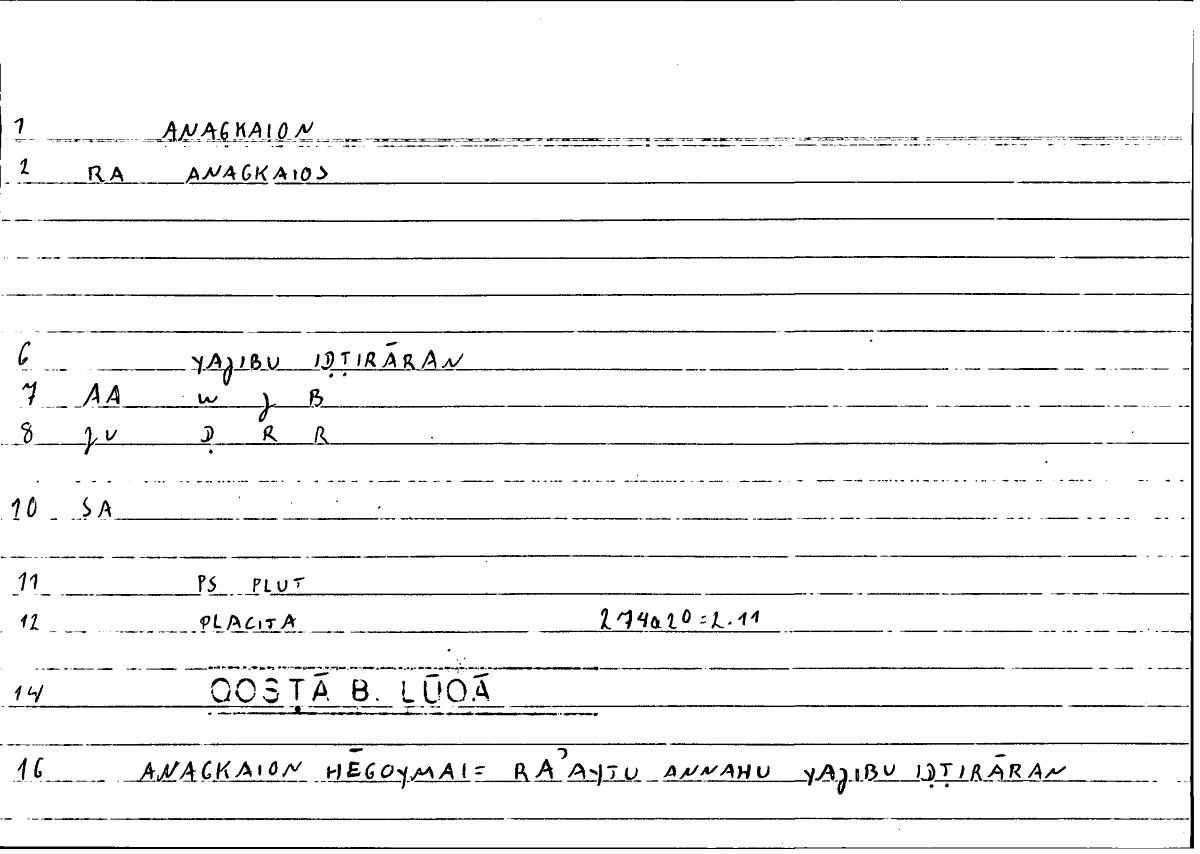 1 ANAGKAION
2 RA ANAGKAIOS
6 YAJIBU IḌṬIRĀRAN
7 AA W J B
8 JU Ḍ R R
10 SA
11 PS PLUT
12 PLACITA 274a20=2.11
14 QOSṬĀ B. LŪQĀ
16 ANAGKAION HĒGOYMAI= RA'AYTU ANNAHU YAJIBU IḌṬIRĀRAN